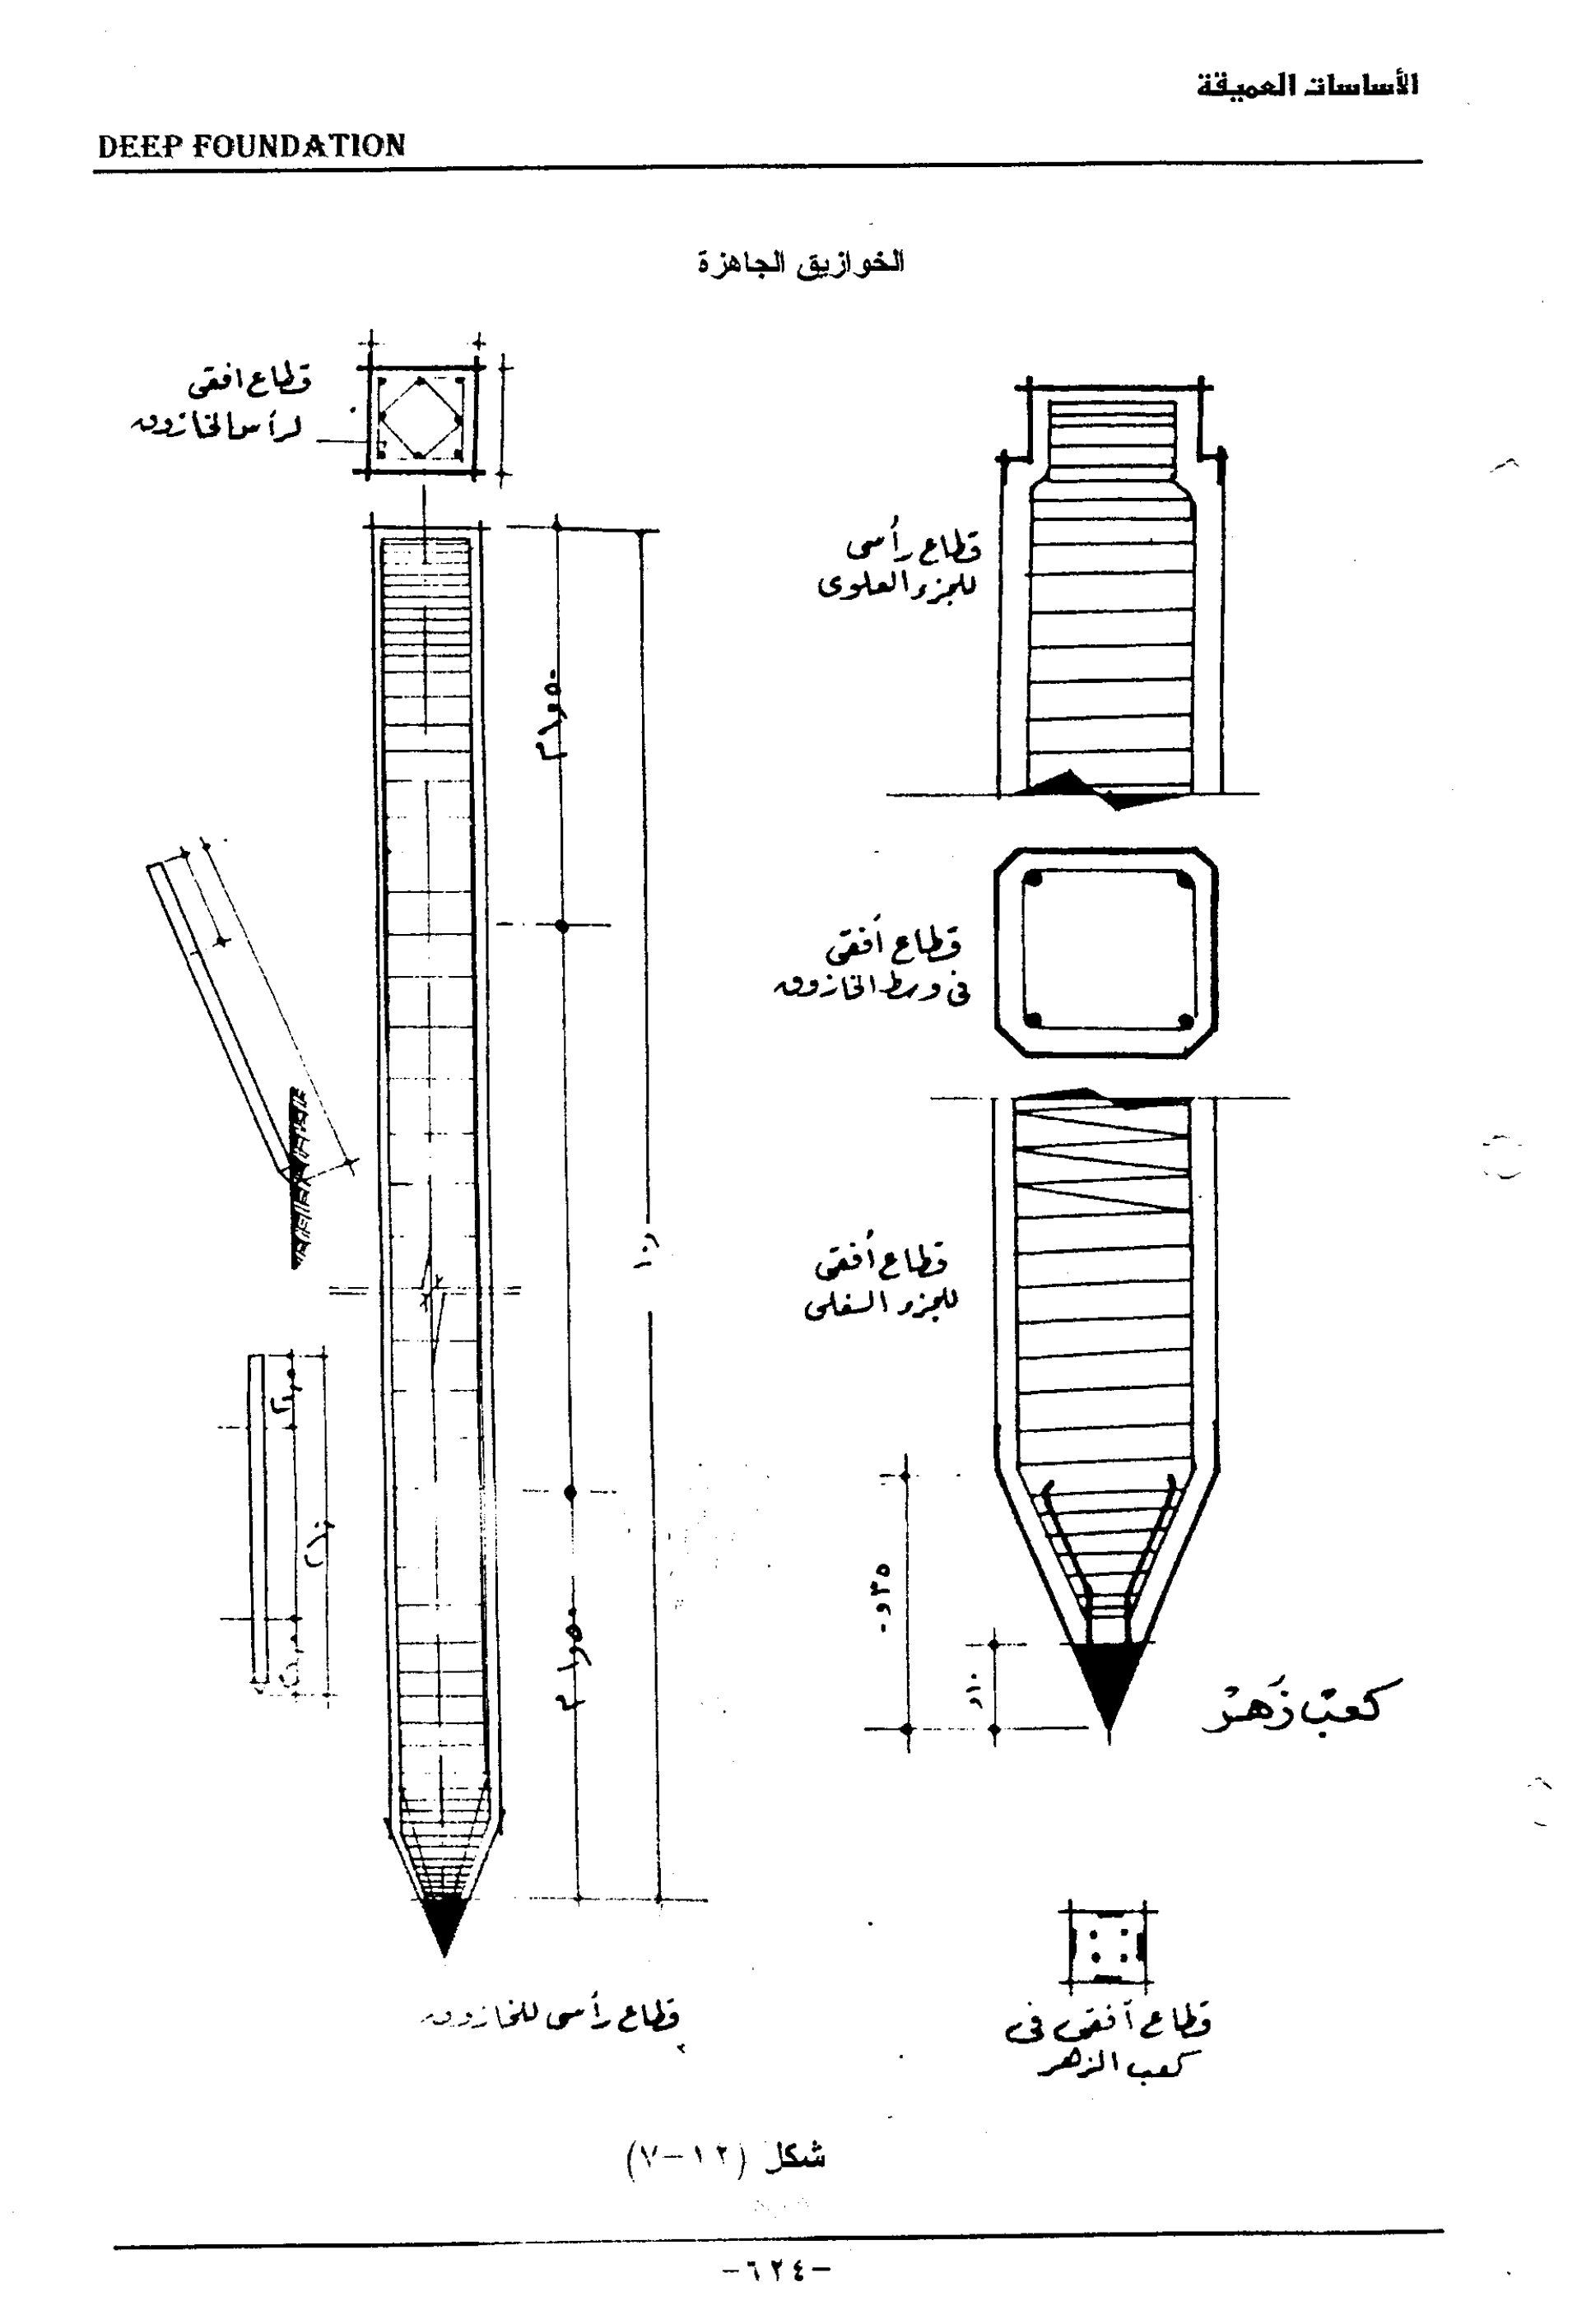 الأساسات العميقة
DEEP FOUNDATION
الخوازيق الجاهزة
قطاع افقى
لرأس الخازوق
قطاع رأسى
للجزء العلوى
قطاع أفقى
فى وسط الخازوق
قطاع أفقى
للجزء السفلى
٣٥و٠
١٠و
كعب زهر
قطاع رأسى للخازوق
قطاع أفقى فى
كعب الزهر
شكل (١٢-٧)
-٦٢٤-